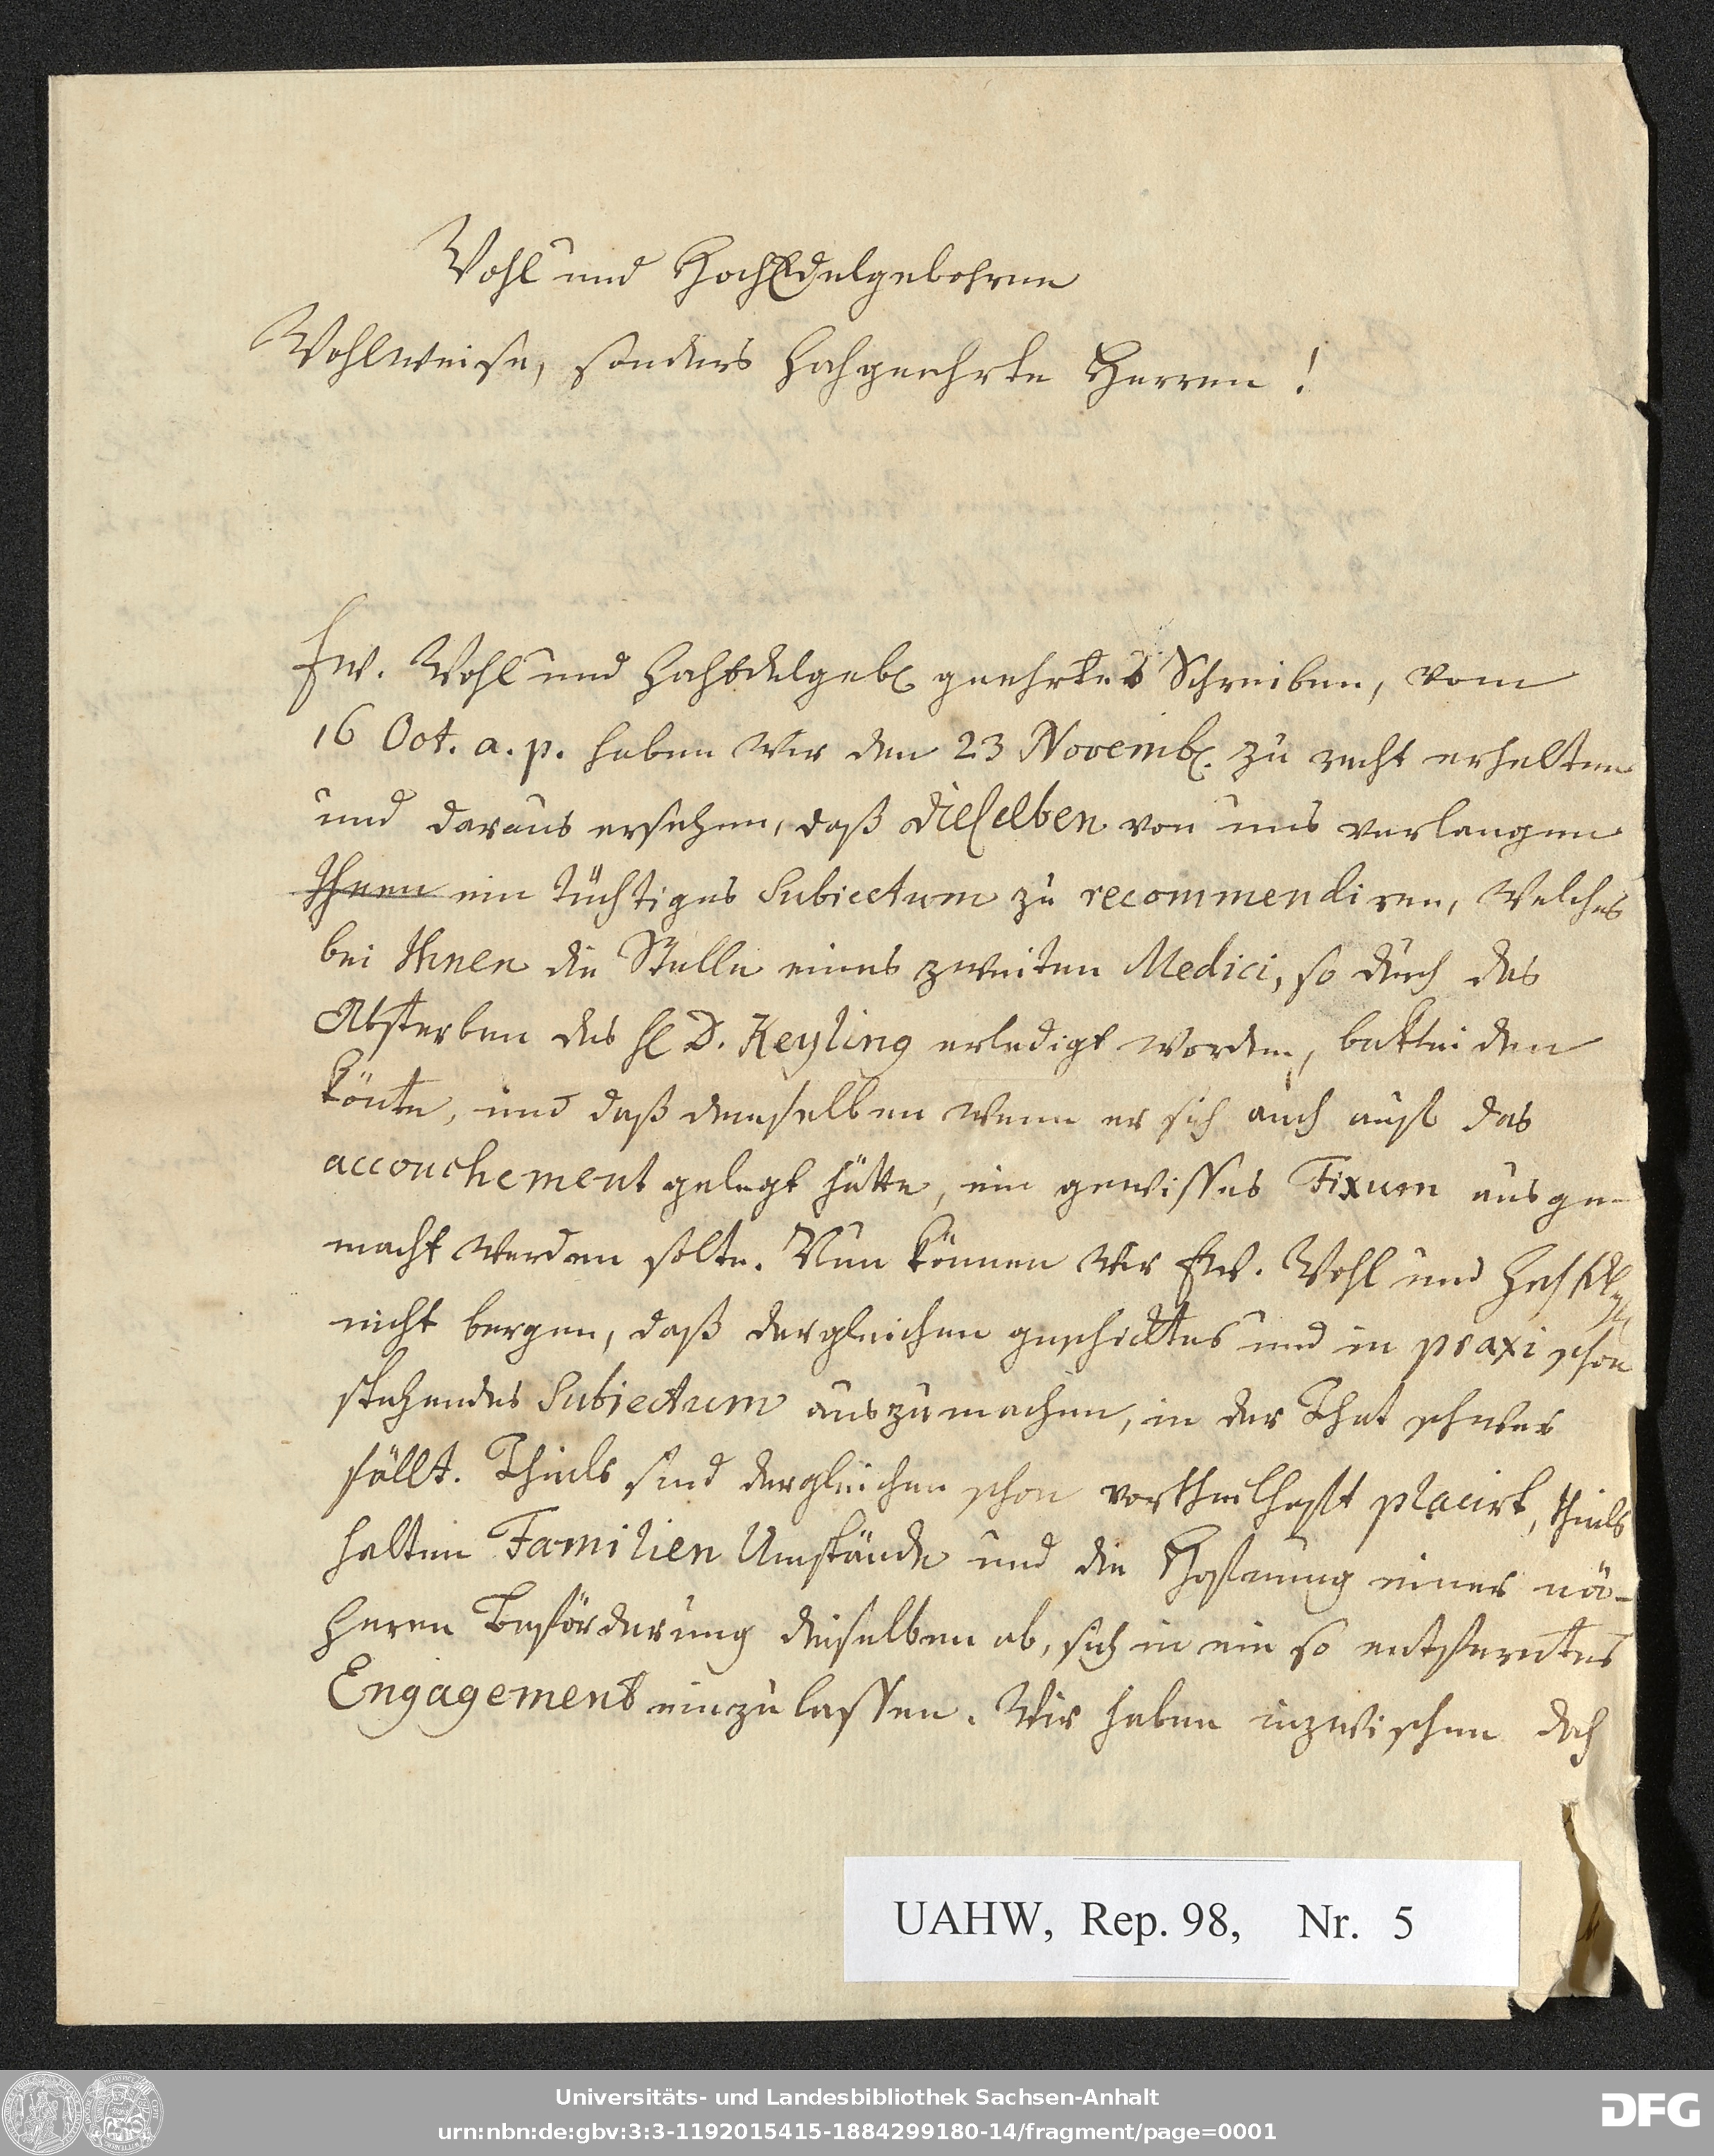 Wohl und HochEdelgebohrne
Wohlweise, sonders Hochgeehrte Herren!
Ew. Wohl und HochEdelgeb. geehrtes Schreiben, vom
16 Oct. a. p. haben wir den 23 Novemb. zu recht erhalten
und daraus ersehen, daß dieselben von uns verlangen
Ihnen ein tüchtiges Subiectum zu recommendiren, welches
bei Ihnen die Stelle eines zweiten Medici, so durch das
Absterben des H D. Keyling erledigt worden, bekleiden
könte, und daß demselben wenn er sich auch auf das
accouchement gelegt hätte, ein gewisses Fixum ausge-
macht werden solte. Nun können wir Ew. Wohl und
nicht bergen, daß dergleichen geschicktes und in praxi schon
stehendes Subiectum auszumachen, in der That schwer
fällt. Theils sind dergleichen schon vortheilhaft placirt, theils
halten Familien Umstände und die Hofnung einer nä-
heren Beförderung dieselben ab, sich in ein so entferntes
Engagement einzulassen. Wir haben inzwischen doch
UAHW, Rep. 98, Nr. 5
Universitäts- und Landesbibliothek Sachsen-Anhalt
urn:nbn:de:gbv:3:3-1192015415-1884299180-14/fragment/page=0001
DFG